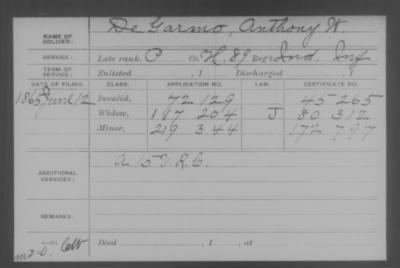 NAME OF SOLDIER: De Garmo, Anthony W.
SERVICE: Late rank, P Co. H, 89 Reg't Ind. Inf
TERM OF SERVICE: Enlisted , 1 Discharged , 1
DATE OF FILING. CLASS. APPLICATION NO. LAW. CERTIFICATE NO.
1865 June 12 Invalid, 72 129 45 265
Widow, 117 204 J 80 312
Minor, 219 344 172 797
ADDITIONAL SERVICES: A 15 V.R.C.
REMARKS:
Died , 1 , at